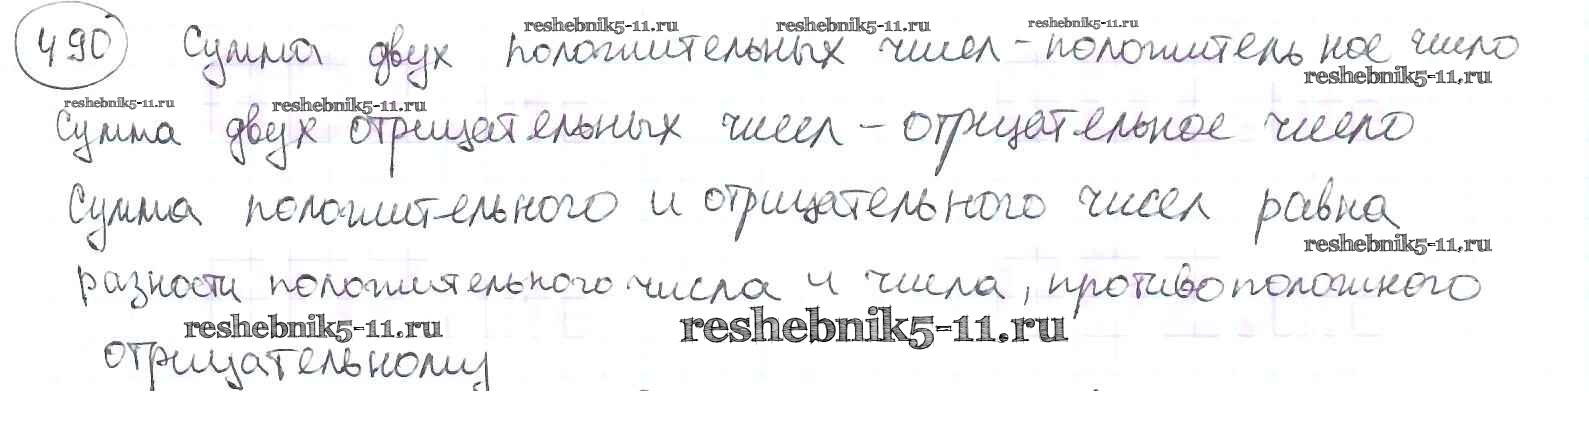 reshebnik5-11.ru reshebnik5-11.ru reshebnik5-11.ru
490 Сумма двух положительных чисел - положительное число
reshebnik5-11.ru
reshebnik5-11.ru reshebnik5-11.ru
Сумма двух отрицательных чисел - отрицательное число
Сумма положительного и отрицательного чисел равна
reshebnik5-11.ru
разности положительного числа и числа, противоположного
reshebnik5-11.ru reshebnik5-11.ru
отрицательному